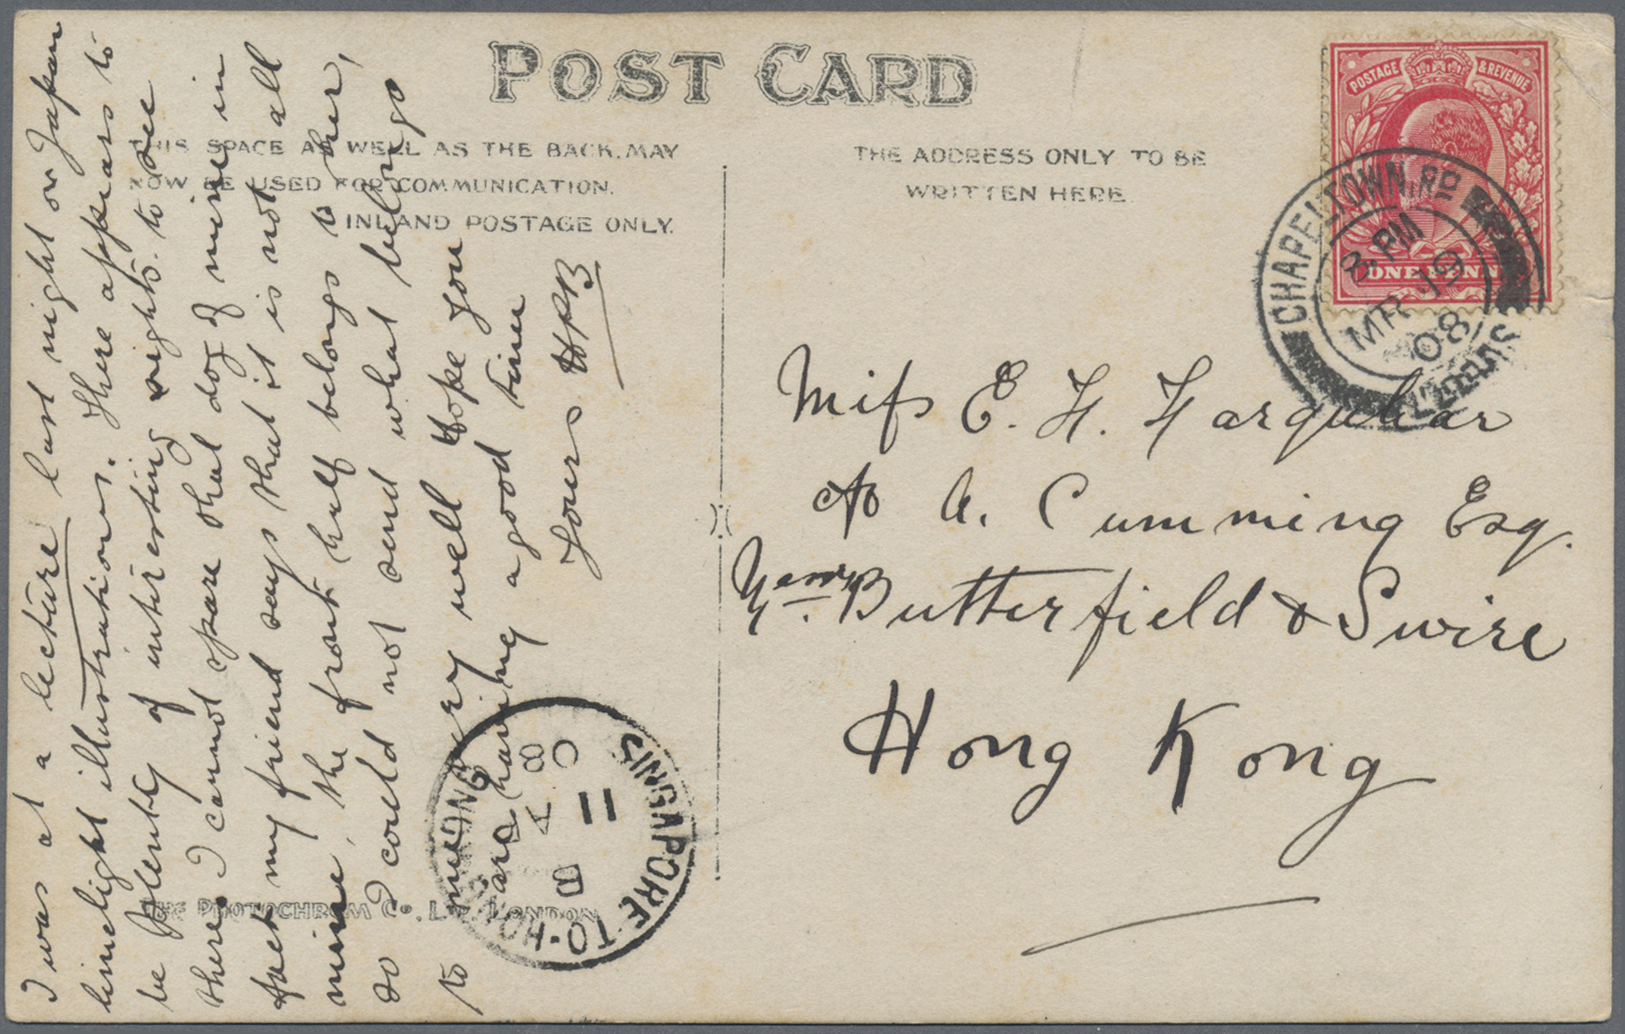 POST CARD
THIS SPACE AS WELL AS THE BACK, MAY
NOW BE USED FOR COMMUNICATION.
INLAND POSTAGE ONLY.
THE ADDRESS ONLY TO BE
WRITTEN HERE.
POSTAGE & REVENUE
ONE PENNY
CHAPELTOWN RD
LEEDS
8. PM
MR 19
08
I was at a lecture last night on Japan
limelight illustrations. There appears to
be plenty of interesting sights to see
there. I cannot spare that dog of mine in
fact my friend says that it is not all
mine, the front half belongs to her,
so I could not send what belongs
to me very well Hope you
are having a good time
Yours HPB
Miss E. H. Farquhar
c/o A. Cumming Esq.
Butterfield & Swire
Hong Kong
SINGAPORE-TO-HONGKONG
D
11
AP
08
THE PHOTOCHROM CO. LTD. LONDON